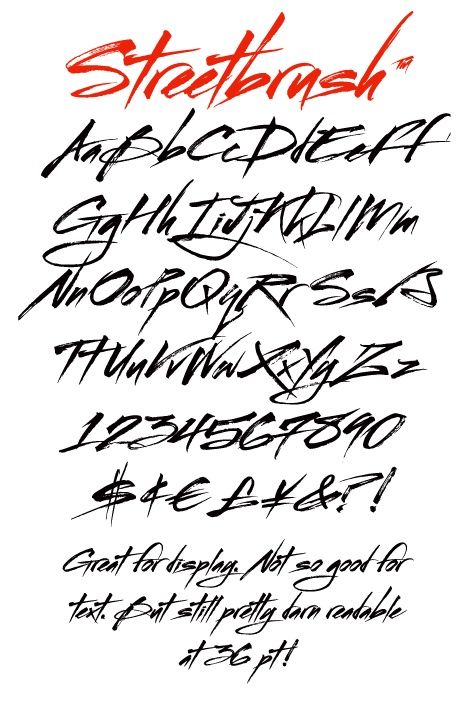 Streetbrush™
AaBbCcDdEeFf
GgHhIiJjKkLlMm
NnOoPpQqRrSsß
TtUuVvWwXxYyZz
1234567890
$¢€£¥&?!
Great for display. Not so good for
text. But still pretty darn readable
at 36 pt!